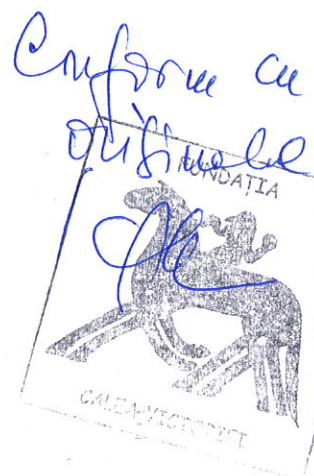 Conform cu
originalul
FUNDAȚIA
CALEA VICTORIEI